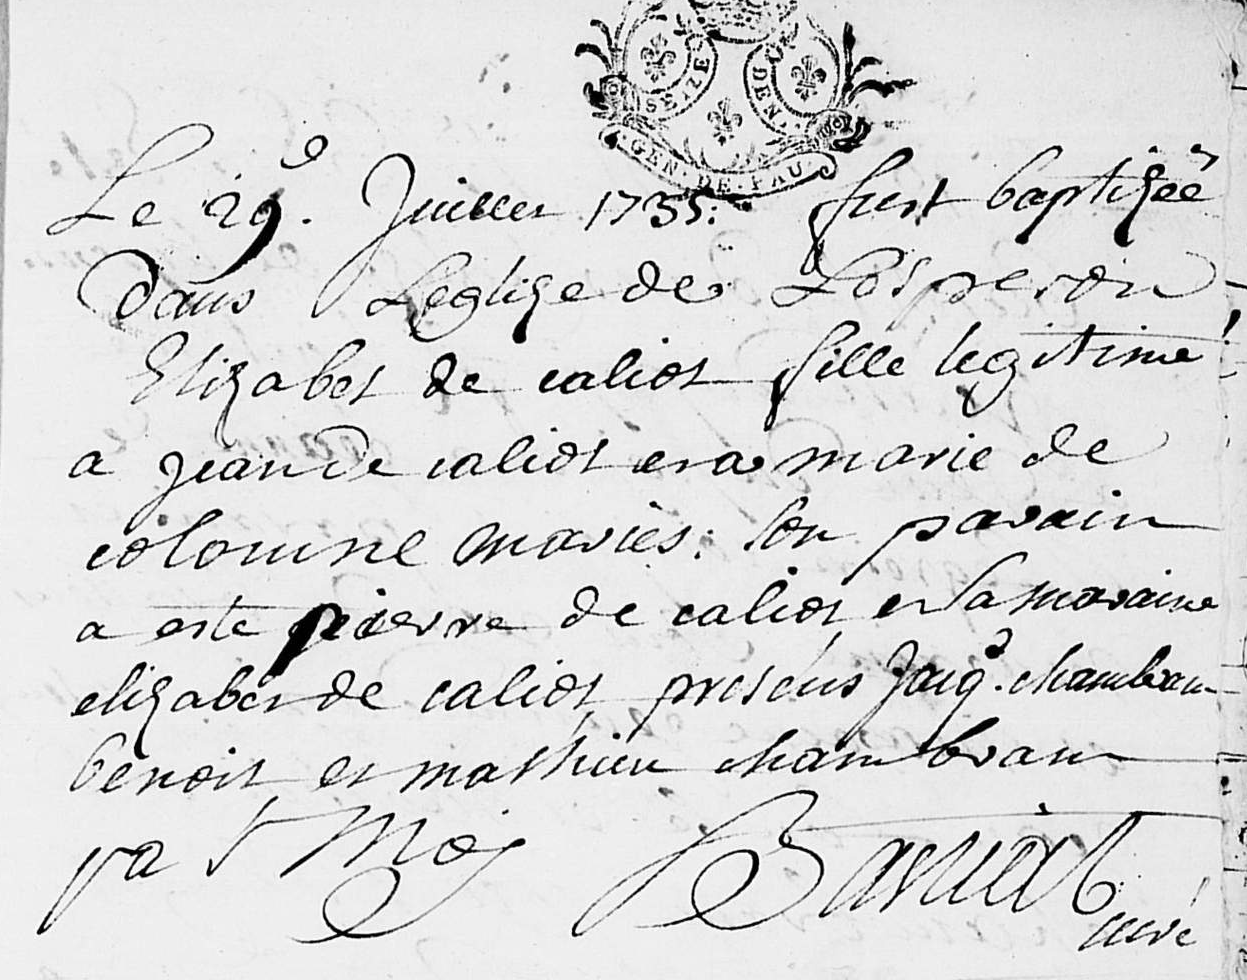 SEIZE DEN.
GEN. DE. PAU
Le 29e. Juillet 1735: fust baptizéé
dans Leglize de Losperon
Elizabet de caliot fille legitime
a jean de caliot et a marie de
colomne mariés: son parain
a esté pierre de caliot et La maraine
elizabet de caliot presens Jaqe. chambran
benoit et mathieu chambran
par Moy
curé